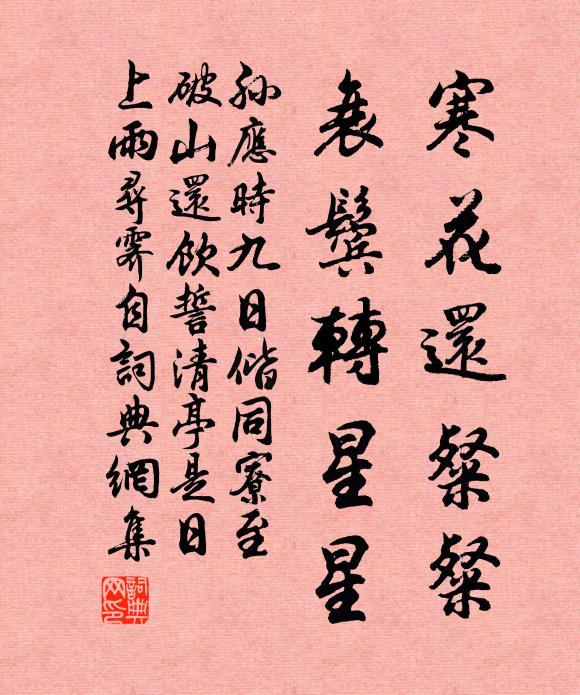 寒花還粲粲
衰鬓轉星星
孙應時九日偕同寮至
破山還飲誓清亭是日
上雨尋霽自詞典網集
詞典网印